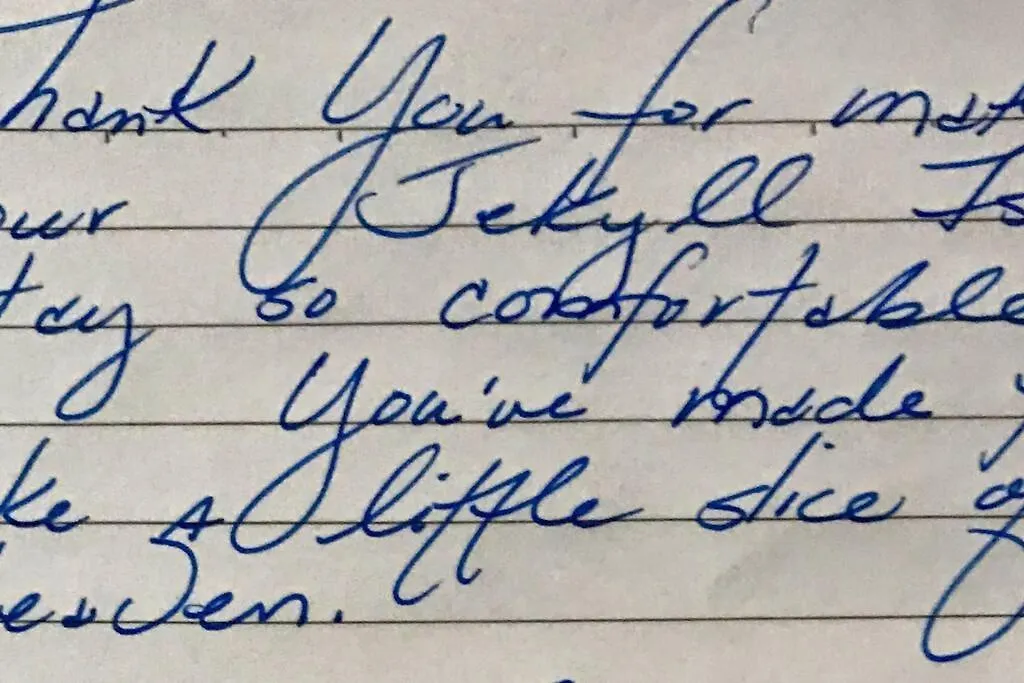 Thank You for mak
our Jekyll Is
tay so comfortable
You've made
ke A little slice of
eaven.